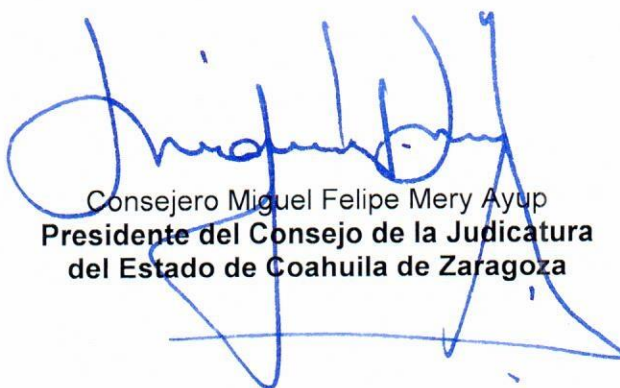 Consejero Miguel Felipe Mery Ayup
Presidente del Consejo de la Judicatura
del Estado de Coahuila de Zaragoza